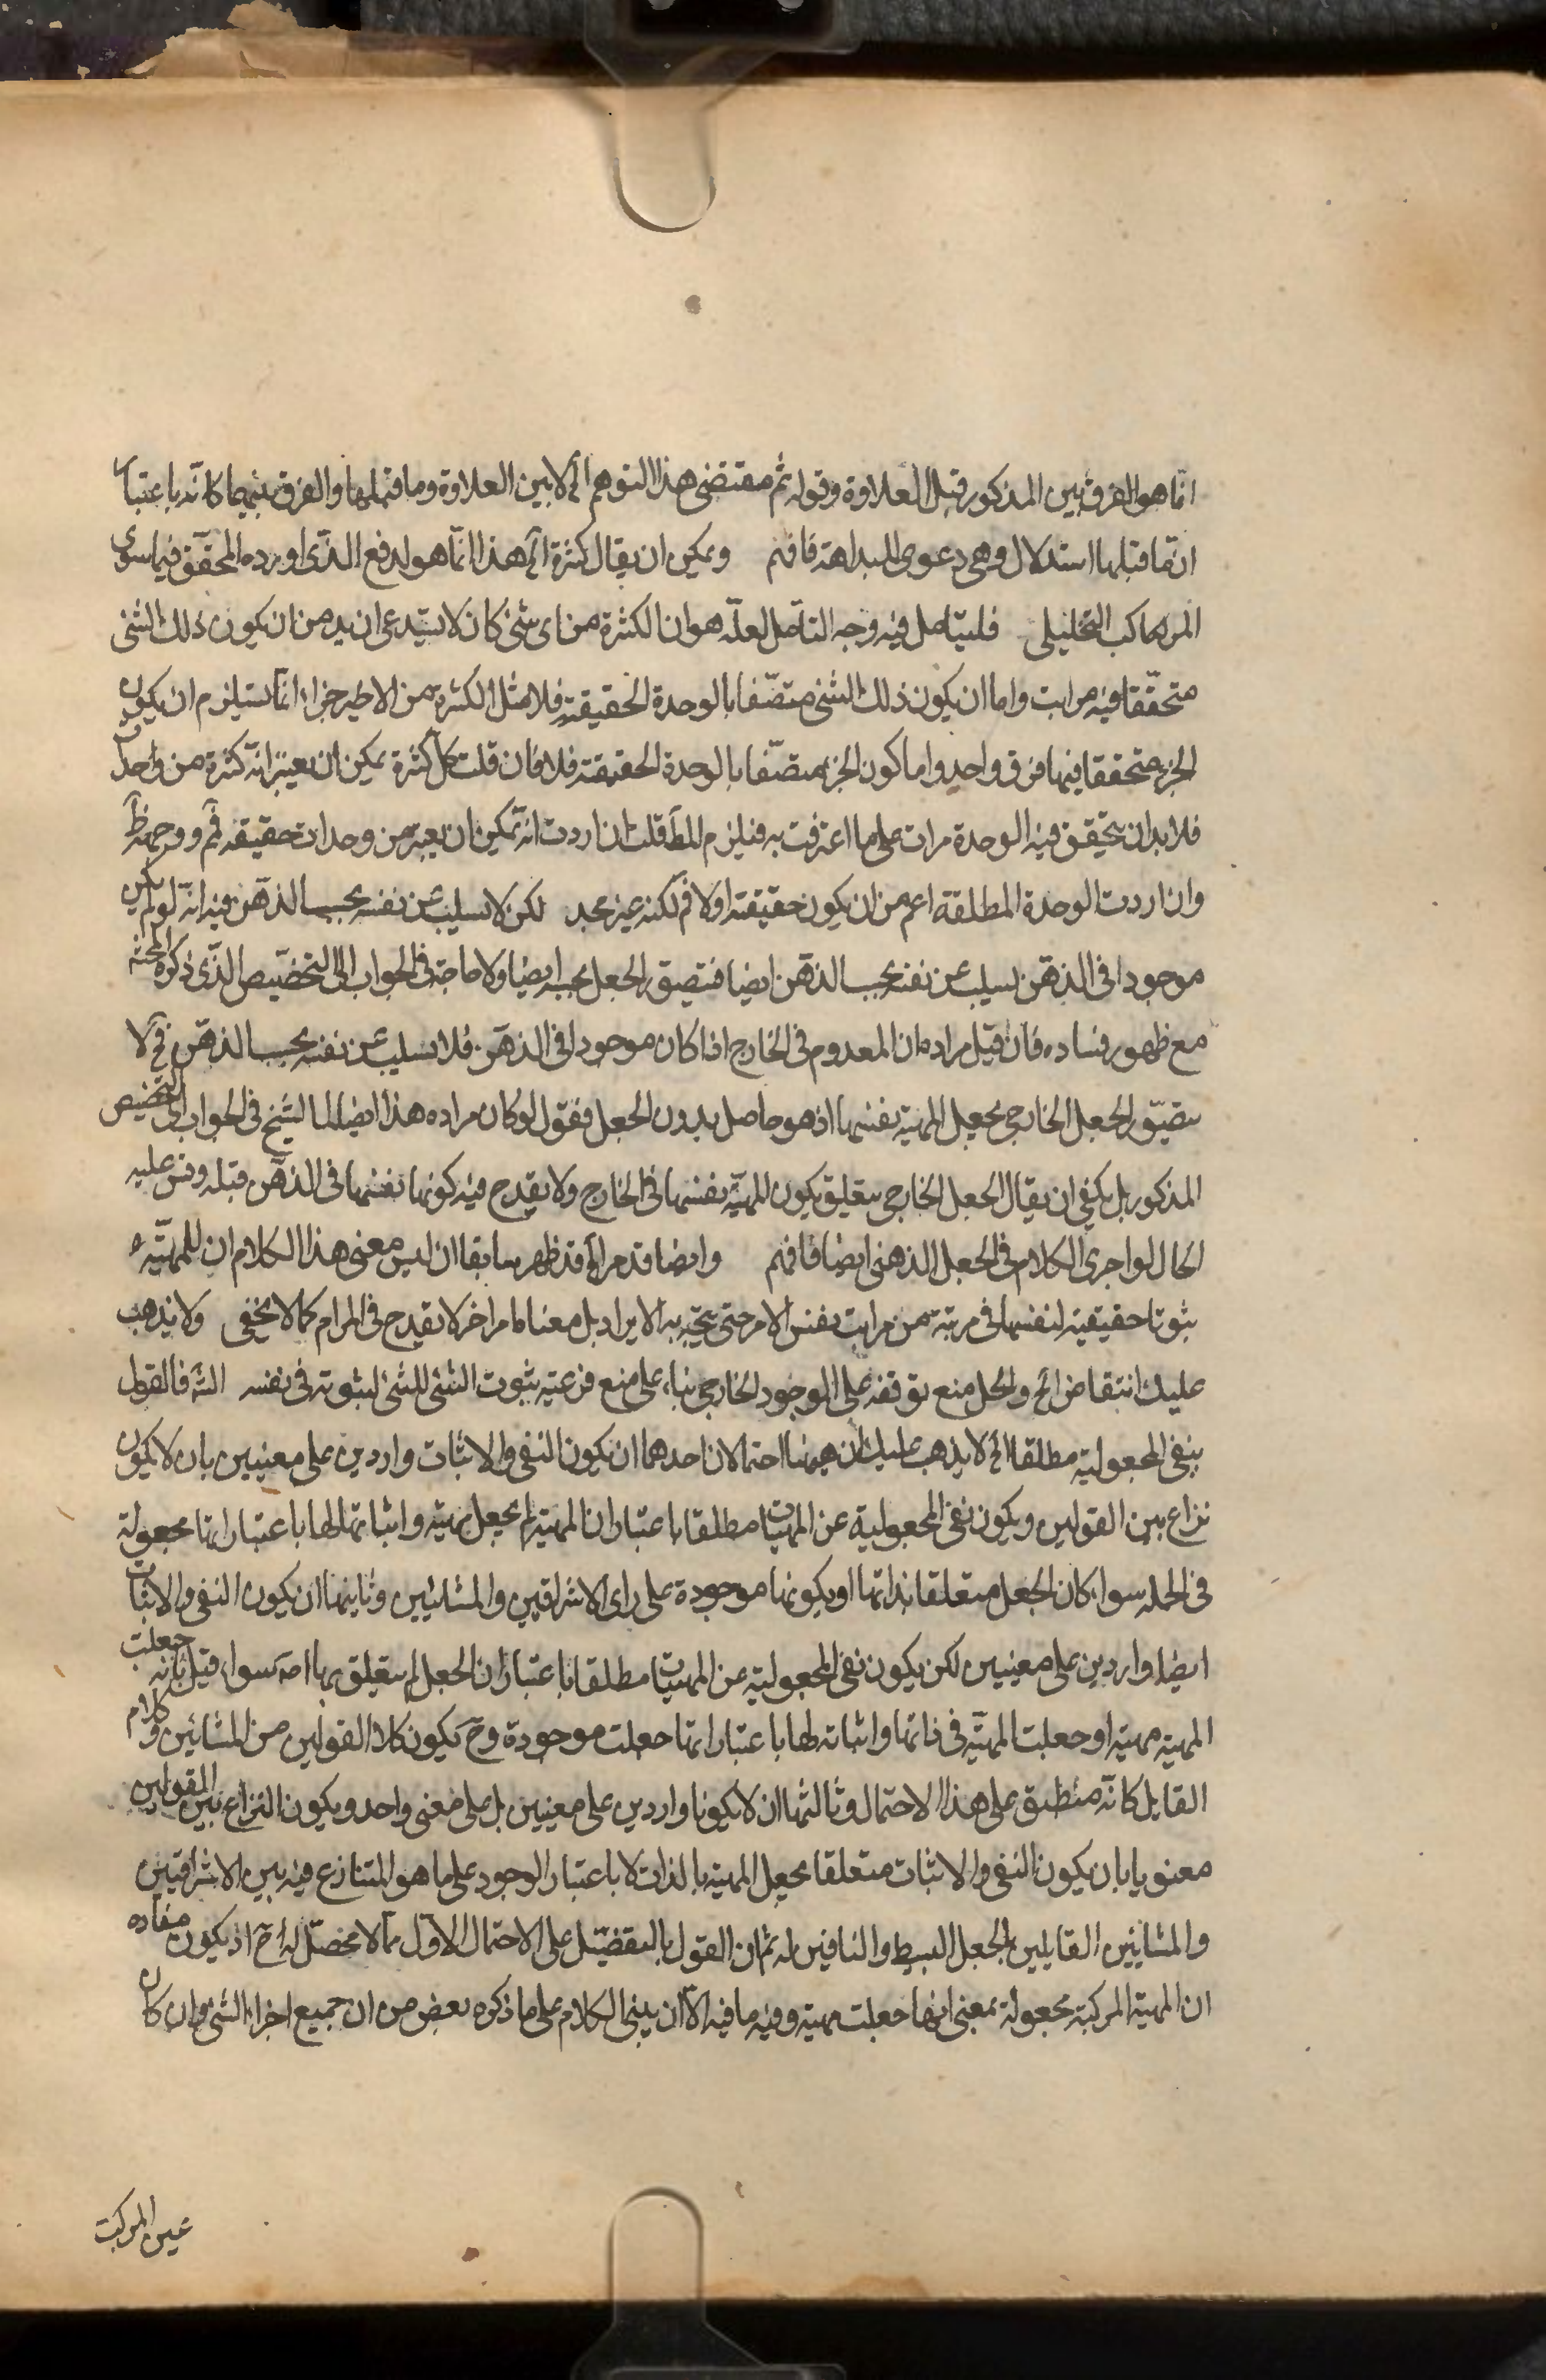 انما هو الفرق بين المذكور قبل العلاوة وقوله ثم مقتضى هذا التوهم الخ لا بين العلاوة وما قبلها والفرق بينهما كانه باعتبار
ان ما قبلها استدلال وهى دعوى البداهة فافهم ويمكن ان يقال كثرة الخ هذا انما هو لدفع الذى اورده المحقق فيما سوى
المركب التحليلى فليتامل فيه وجه التامل لعله هو ان الكثرة من اى شئ كان لا يستدعى ازيد من ان يكون ذلك الشئ
متحققا فيه مرات واما ان يكون ذلك الشئ متصفا بالوحدة الحقيقة فلا مثلا الكثرة من الاجزاء انما يستلزم ان يكون
الجزء متحققا فيها فوق واحد واما كون الجزء متصفا بالوحدة الحقيقة فلا فان قلت كل كثرة يمكن ان يعتبر انه كثرة من واحد
فلا بد ان يتحقق فيه الوحدة مرات على ما اعترفت به فيلزم المط قلت ان اردت انه يمكن ان يعتبر من وحدات حقيقة فم ووجهه ظ
وان اردت الوحدة المطلقة اعم من ان يكون حقيقة او لا فم لكنه غير مجد لكن لا يسلب عن نفسه بحسب الذهن فيه انه لو لم يكن
موجودا فى الذهن يسلب عن نفسه بحسب الذهن ايضا فيتصور الجعل بحسبه ايضا ولا حاجة فى الجواب الى التخصيص الذى ذكره المحشى
مع ظهور فساده فان قيل مراده ان المعدوم فى الخارج اذا كان موجودا فى الذهن فلا يسلب عن نفسه بحسب الذهن فح لا
يتصور الجعل الخارجى بجعل المهية نفسها اذ هو حاصل بدون الجعل فنقول لو كان مراده هذا ايضا لما الشيخ فى الجواب الى التخصيص
المذكور بل يكفى ان يقال الجعل الخارجى يتعلق بكون المهية نفسها فى الخارج ولا يقدح فيه كونها نفسها فى الذهن قبله وقس عليه
الحال لو اجرى الكلام فى الجعل الذهنى ايضا فافهم وايضا قد مر الخ قد ظهر سابقا ان ليس معنى هذا الكلام ان للمهية
ثبوتا حقيقية لنفسها فى مرتبة من مراتب نفس الامر حتى يتجه به الايراد بل معناه امر اخر لا يقدح فى المرام كما لا يخفى ولا يذهب
عليك انتقاض الخ والحل منع توقفه على الوجود الخارجى بناء على منع فرعية ثبوت الشئ للشئ لثبوته فى نفسه الش فالقول
بنفى المجعولية مطلقا الخ لا يذهب عليك ان ههنا احتمالات احدهما ان يكون النفى والاثبات واردين على معنيين بان لا يكون
نزاع بين القولين ويكون نفى المجعولية عن المهيات مطلقا باعتبار ان المهية لم يجعل مهية واثباتها لها باعتبار انها مجعولة
فى الجملة سواء كان الجعل متعلقا بذاتها او بكونها موجودة على راى الاشراقيين والمشائيين وثانيها ان يكون النفى والاثبات
ايضا واردين على معنيين لكن يكون نفى المجعولية عن المهيات مطلقا باعتبار ان الجعل لم يتعلق بها اصلا سواء قيل بانه جعلت
المهية مهية او جعلت المهية فى ذاتها واثباته لها باعتبار انها جعلت موجودة وح يكون كلا القولين من المشائين وكلام
القايل كانه منطبق على هذا الاحتمال وثالثها ان لا يكونا واردين على معنيين بل على معنى واحد ويكون النزاع بين القولين
معنويا بان يكون النفى والاثبات متعلقا بجعل المهية بالذات لا باعتبار الوجود على ما هو المتنازع فيه بين الاشراقيين
والمشائين القايلين بالجعل البسيط والنافين له ثم ان القول بالتفصيل على الاحتمال الاول مما لا محصل له ح اذ يكون مفاده
ان المهية المركبة مجعولة بمعنى انها جعلت مهية وفيه ما فيه الا ان يبنى الكلام على ما ذكره بعض من ان جميع اجزاء الشئ وان كان
عين المركب